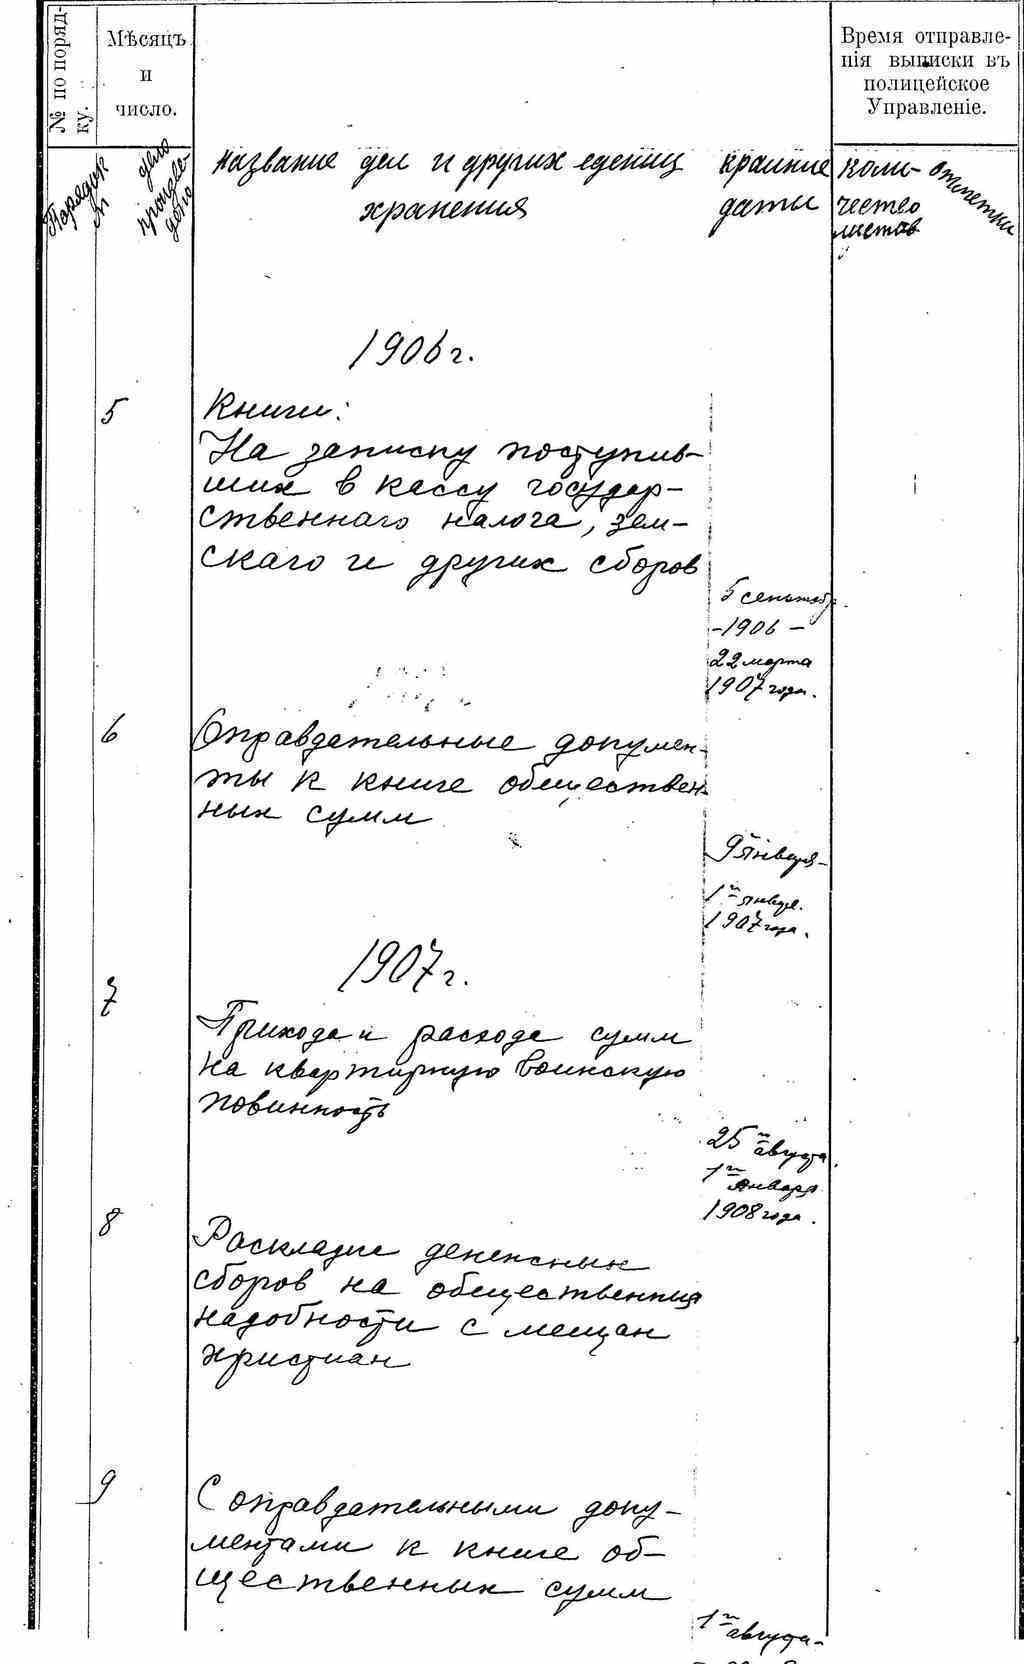 № по поряд-
ку.
Мѣсяцъ
и
число.
Время отправле-
нія выписки въ
полицейское
Управленіе.
Порядок
№
дело
произве-
дено
название дел и других едениц
хранения
крайние
даты
коли-
чество
листов
отметки
1906 г.
5
Книги:
На записку поступив-
ших в кассу государ-
ственнаго налога, зем-
скаго и других сборов
5 сентябр.
-1906 -
22 марта
1907 года.
6
Оправдательные докумен-
ты к книге обществен-
ных сумм
9 января-
1 января.
1907 года.
1907 г.
7
Прихода и расхода сумм
на квартирную воинскую
повинность
25 августа
1 января
1908 года.
8
Раскладке денежных
сборов на общественныя
надобности с мещан
христиан
9
С оправдательными доку-
ментами к книге об-
щественных сумм
1 августа-